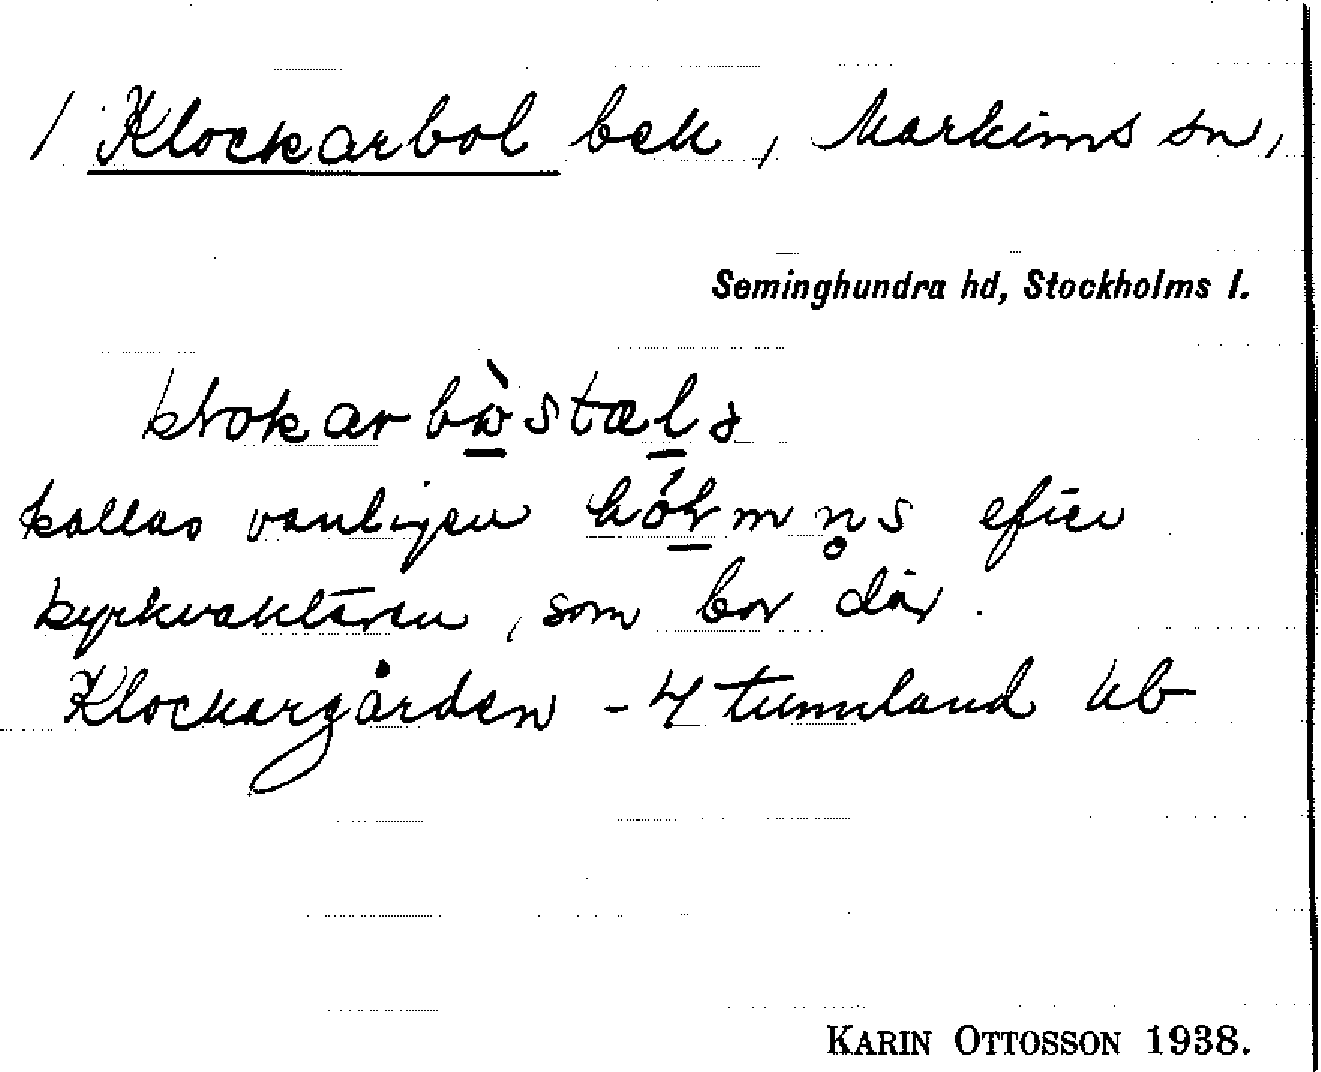 1 Klockarbol bek, Markims sn,
Seminghundra hd, Stockholms l.
klokarbωstæls
kallas vanligen hólmn̥s efter
kyrkvaktaren, som bor där.
Klockargården - 4 tunnland
KARIN OTTOSSON 1938.